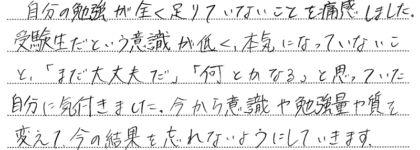 自分の勉強が全く足りていないことを痛感しました。
受験生だという意識が低く、本気になっていないこ
と、「まだ大丈夫だ」「何とかなる」と思っていた
自分に気付きました。今から意識や勉強量や質を
変えて、今の結果を忘れないようにしていきます。